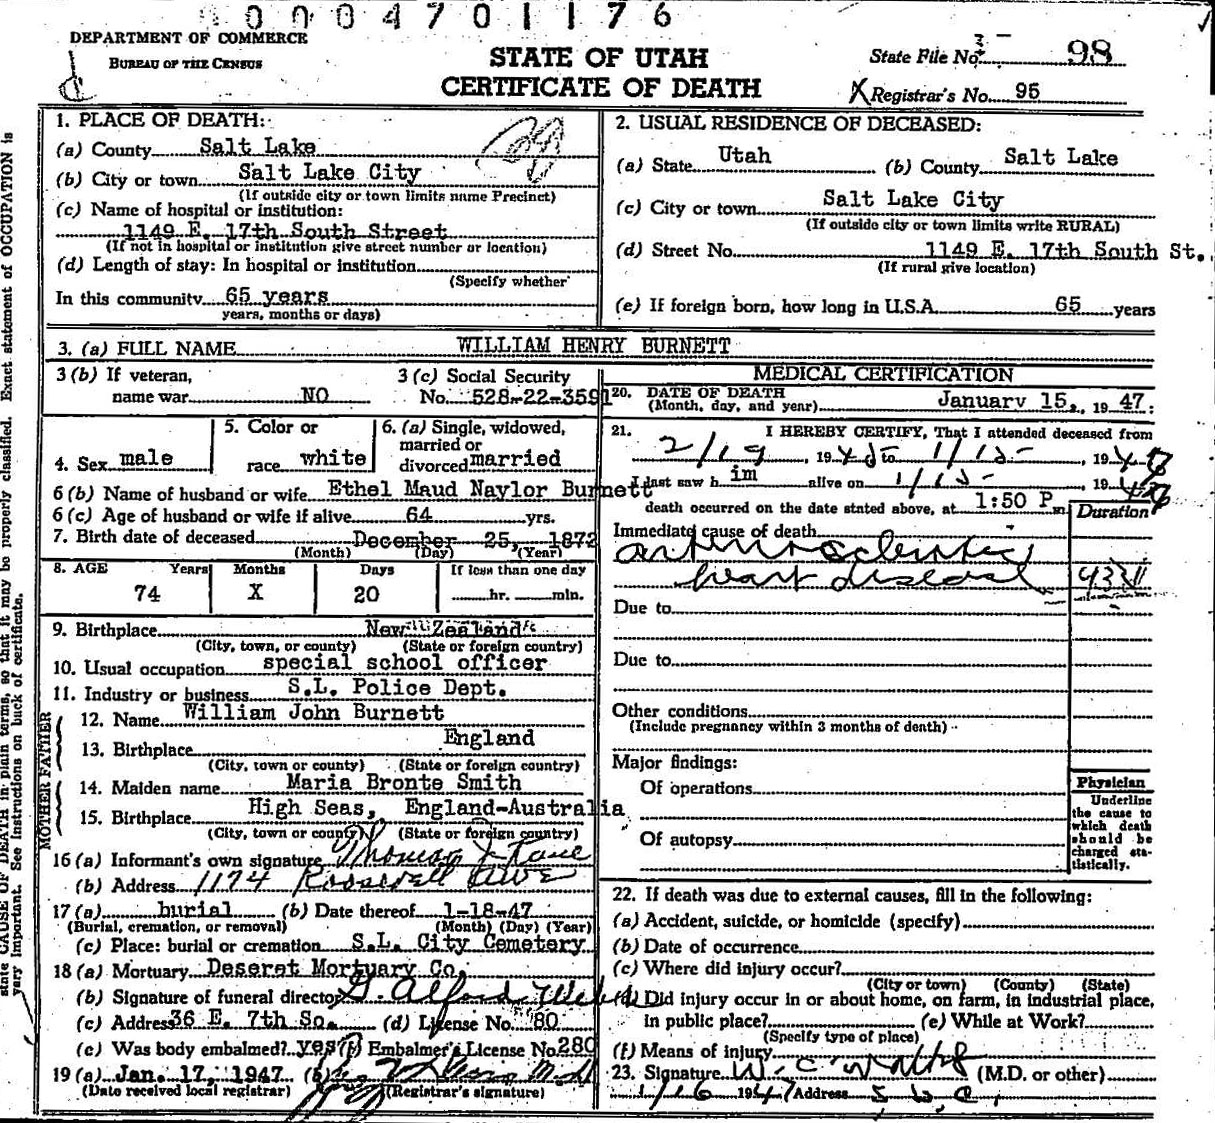 0 0 0 4 7 0 1 1 7 6
DEPARTMENT OF COMMERCE
BUREAU OF THE CENSUS
STATE OF UTAH
CERTIFICATE OF DEATH
State File No. 98
X Registrar's No. 95
state CAUSE OF DEATH in plain terms, so that it may be properly classified. Exact statement of OCCUPATION is
very important. See instructions on back of certificate.
1. PLACE OF DEATH:
(a) County Salt Lake
(b) City or town Salt Lake City
(If outside city or town limits name Precinct)
(c) Name of hospital or institution:
1149 E. 17th South Street
(If not in hospital or institution give street number or location)
(d) Length of stay: In hospital or institution
(Specify whether
In this community 65 years
years, months or days)
2. USUAL RESIDENCE OF DECEASED:
(a) State Utah (b) County Salt Lake
(c) City or town Salt Lake City
(If outside city or town limits write RURAL)
(d) Street No. 1149 E. 17th South St.
(If rural give location)
(e) If foreign born, how long in U.S.A. 65 years
3. (a) FULL NAME WILLIAM HENRY BURNETT
3 (b) If veteran,
name war NO
3 (c) Social Security
No. 528-22-3591
4. Sex male
5. Color or
race white
6. (a) Single, widowed,
married or
divorced married
6 (b) Name of husband or wife Ethel Maud Naylor Burnett
6 (c) Age of husband or wife if alive 64 yrs.
7. Birth date of deceased December 25, 1872
(Month) (Day) (Year)
8. AGE Years Months Days If less than one day
74 X 20 hr. min.
9. Birthplace New Zealand
(City, town, or county) (State or foreign country)
10. Usual occupation special school officer
11. Industry or business S.L. Police Dept.
FATHER
12. Name William John Burnett
13. Birthplace England
(City, town or county) (State or foreign country)
MOTHER
14. Maiden name Maria Bronte Smith
15. Birthplace High Seas, England-Australia
(City, town or county) (State or foreign country)
16 (a) Informant's own signature Thomas J Kane
(b) Address 1174 Roosevelt Ave
17 (a) burial (b) Date thereof 1-18-47
(Burial, cremation, or removal) (Month) (Day) (Year)
(c) Place: burial or cremation S.L. City Cemetery
18 (a) Mortuary Deseret Mortuary Co.
(b) Signature of funeral director G. Alford
(c) Address 36 E. 7th So. (d) License No. 80
(e) Was body embalmed? yes (f) Embalmer's License No. 280
19 (a) Jan. 17, 1947 (b) M.D.
(Date received local registrar) (Registrar's signature)
MEDICAL CERTIFICATION
20. DATE OF DEATH
(Month, day, and year) January 15, 1947:
21. I HEREBY CERTIFY, That I attended deceased from
2/19, 1945 to 1/15, 1947
I last saw him alive on 1/15, 1947
death occurred on the date stated above, at 1:50 P m.
Duration
Immediate cause of death
arteriosclerotic
heart disease
Due to
Due to
Other conditions
(Include pregnancy within 3 months of death)
Major findings:
Of operations
Of autopsy
Physician
Underline
the cause to
which death
should be
charged sta-
tistically.
22. If death was due to external causes, fill in the following:
(a) Accident, suicide, or homicide (specify)
(b) Date of occurrence
(c) Where did injury occur?
(City or town) (County) (State)
(d) Did injury occur in or about home, on farm, in industrial place,
in public place? (e) While at Work?
(Specify type of place)
(f) Means of injury
23. Signature W. C. (M.D. or other)
1/16 1947 Address S. L. C.